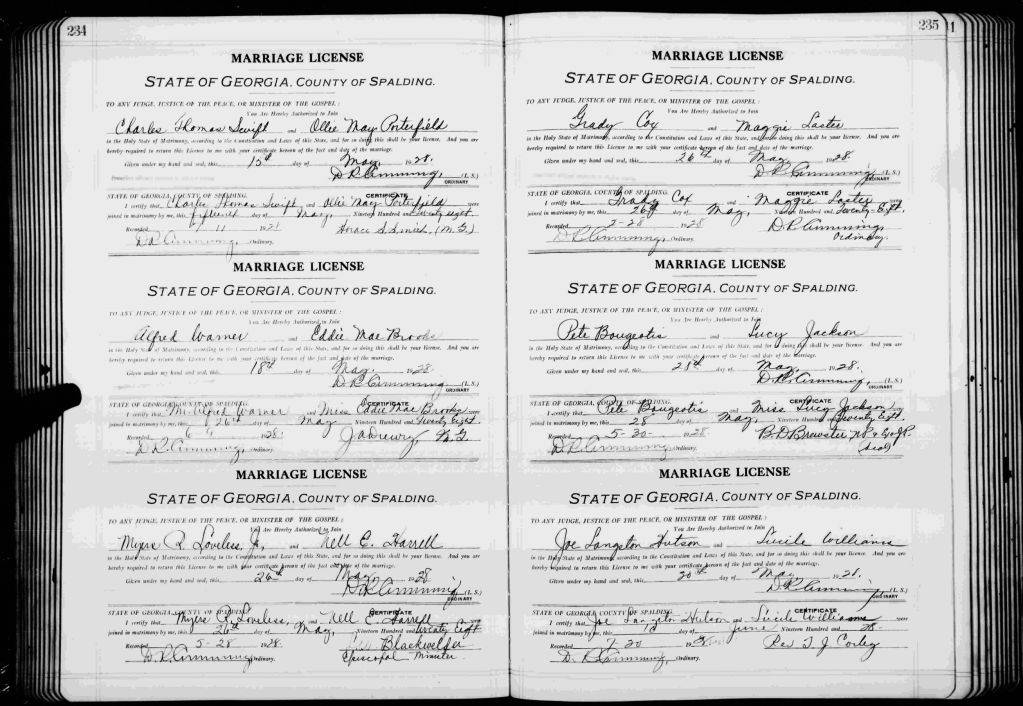 234
MARRIAGE LICENSE
STATE OF GEORGIA, COUNTY OF SPALDING.
TO ANY JUDGE, JUSTICE OF THE PEACE, OR MINISTER OF THE GOSPEL:
You Are Hereby Authorized to Join
Charles Thomas Swift and Ollie May Porterfield
in the Holy State of Matrimony, according to the Constitution and Laws of this State, and for so doing this shall be your license. And you are
hereby required to return this License to me with your certificate hereon of the fact and date of the marriage.
Given under my hand and seal, this 15th day of May, 1928.
D. R. Cumming, (L. S.)
ORDINARY
STATE OF GEORGIA, COUNTY OF SPALDING. CERTIFICATE
I certify that Charlie Thomas Swift and Ollie May Porterfield were
joined in matrimony by me, this fifteenth day of May, Nineteen Hundred and twenty eight
Recorded 11 1928 Horace S. Smith, (M. G.)
D. R. Cumming, Ordinary.
MARRIAGE LICENSE
STATE OF GEORGIA, COUNTY OF SPALDING.
TO ANY JUDGE, JUSTICE OF THE PEACE, OR MINISTER OF THE GOSPEL:
You Are Hereby Authorized to Join
Alfred Warner and Eddie Mae Brooks
in the Holy State of Matrimony, according to the Constitution and Laws of this State, and for so doing this shall be your license. And you are
hereby required to return this License to me with your certificate hereon of the fact and date of the marriage.
Given under my hand and seal, this 18th day of May, 1928.
D. R. Cumming (L. S.)
ORDINARY
STATE OF GEORGIA, COUNTY OF SPALDING. CERTIFICATE
I certify that Mr. Alfred Warner and Miss Eddie Mae Brooks were
joined in matrimony by me, this 26th day of May Nineteen Hundred and Twenty Eight.
Recorded 1928. J. A. Drewry M. G.
D. R. Cumming, Ordinary.
MARRIAGE LICENSE
STATE OF GEORGIA, COUNTY OF SPALDING.
TO ANY JUDGE, JUSTICE OF THE PEACE, OR MINISTER OF THE GOSPEL:
You Are Hereby Authorized to Join
Myers R. Loveless Jr, and Nell E. Harrell
in the Holy State of Matrimony, according to the Constitution and Laws of this State, and for so doing this shall be your license. And you are
hereby required to return this License to me with your certificate hereon of the fact and date of the marriage.
Given under my hand and seal, this 26th day of May, 1928
D. R. Cumming (L. S.)
ORDINARY
STATE OF GEORGIA, COUNTY OF SPALDING. CERTIFICATE
I certify that Myers R. Loveless, and Nell E. Harrell were
joined in matrimony by me, this 26th day of May, Nineteen Hundred and twenty Eight
Recorded 5-28 1928. Blackwelder
D. R. Cumming, Ordinary. Episcopal Minister
235
MARRIAGE LICENSE
STATE OF GEORGIA, COUNTY OF SPALDING.
TO ANY JUDGE, JUSTICE OF THE PEACE, OR MINISTER OF THE GOSPEL:
You Are Hereby Authorized to Join
Grady Cox and Maggie Laster
in the Holy State of Matrimony, according to the Constitution and Laws of this State, and for so doing this shall be your license. And you are
hereby required to return this License to me with your certificate hereon of the fact and date of the marriage.
Given under my hand and seal, this 26th day of May, 1928.
D. R. Cumming, (L. S.)
ORDINARY
STATE OF GEORGIA, COUNTY OF SPALDING. CERTIFICATE
I certify that Grady Cox and Maggie Laster were
joined in matrimony by me, this 26th day of May, Nineteen Hundred and Twenty-Eight.
Recorded 5-28 1928 D. R. Cumming,
D. R. Cumming, Ordinary. Ordinary.
MARRIAGE LICENSE
STATE OF GEORGIA, COUNTY OF SPALDING.
TO ANY JUDGE, JUSTICE OF THE PEACE, OR MINISTER OF THE GOSPEL:
You Are Hereby Authorized to Join
Pete Bougeotis and Lucy Jackson
in the Holy State of Matrimony, according to the Constitution and Laws of this State, and for so doing this shall be your license. And you are
hereby required to return this License to me with your certificate hereon of the fact and date of the marriage.
Given under my hand and seal, this 28th day of May, 1928.
D. R. Cumming, (L. S.)
ORDINARY
STATE OF GEORGIA, COUNTY OF SPALDING. CERTIFICATE
I certify that Pete Bougeotis and Miss Lucy Jackson were
joined in matrimony by me, this 28 day of May, Nineteen Hundred and Twenty Eight.
Recorded 5-30 1928 B. D. Brewster
D. R. Cumming, Ordinary. (Seal)
MARRIAGE LICENSE
STATE OF GEORGIA, COUNTY OF SPALDING.
TO ANY JUDGE, JUSTICE OF THE PEACE, OR MINISTER OF THE GOSPEL:
You Are Hereby Authorized to Join
Joe Langston Hutson and Lucile Williams
in the Holy State of Matrimony, according to the Constitution and Laws of this State, and for so doing this shall be your license. And you are
hereby required to return this License to me with your certificate hereon of the fact and date of the marriage.
Given under my hand and seal, this day of May, 1928.
D. R. Cumming (L. S.)
ORDINARY
STATE OF GEORGIA, COUNTY OF SPALDING. CERTIFICATE
I certify that Joe Langston Hutson and Lucile Williams were
joined in matrimony by me, this day of June Nineteen Hundred and 28.
Recorded 7-20 Rev T. J. Corley
D. R. Cumming, Ordinary.